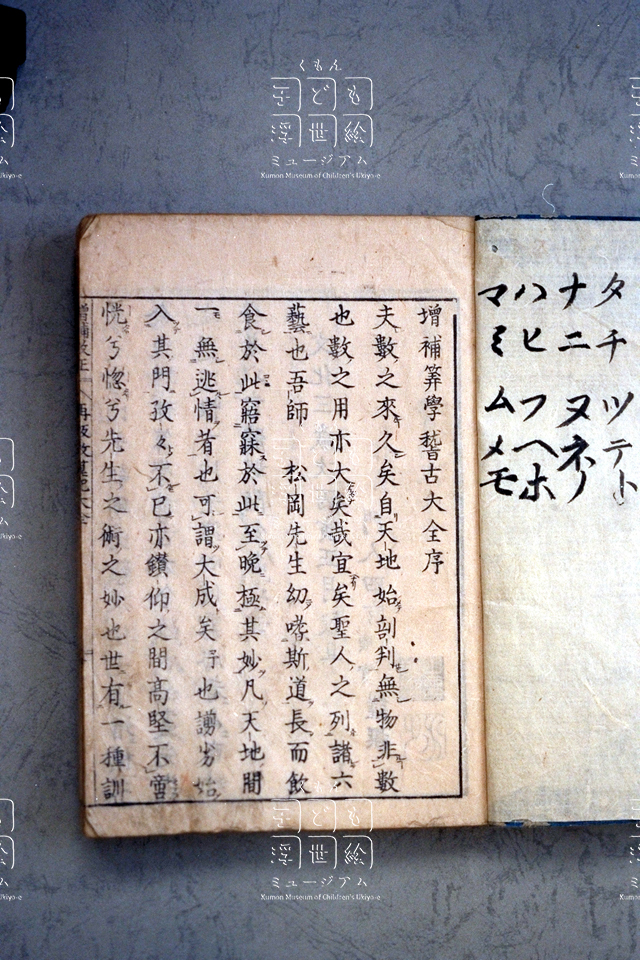 タチツテト
ナニヌネノ
ハヒフヘホ
マミムメモ
增補筭學稽古大全序
夫數之來久矣自天地始剖判無物非數
也數之用亦大矣哉宜矣聖人之列諸六
藝也吾師 松岡先生幼嗜斯道長而飮
食於此寤寐於此至晚極其妙凡天地間
一無逃情者也可謂大成矣予也謭劣始
入其門孜々不已亦鑽仰之間高堅不啻
恍兮惚兮先生之術之妙也世有一種訓
くもん
子ども
浮世絵
ミュージアム
Kumon Museum of Children's Ukiyo-e